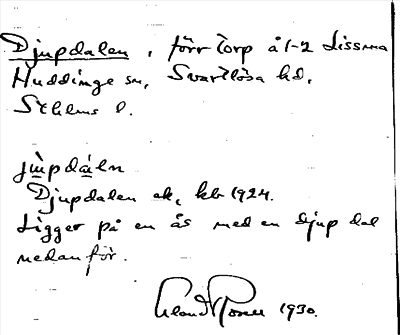 Djupdalen, förr torp å 1-2 Lissma
Huddinge sn, Svartlösa hd,
Sthlms l.
jùpdáln
Djupdalen ek, kb 1924.
Ligger på en ås med en djup dal
nedanför.
1930.